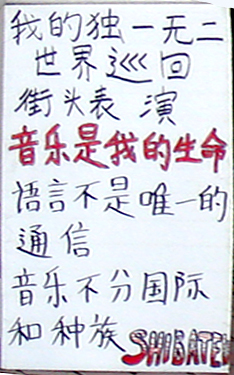 我的独一无二
世界巡回
街头表演
音乐是我的生命
语言不是唯一的
通信
音乐不分国际
和种族 SHIBATEN